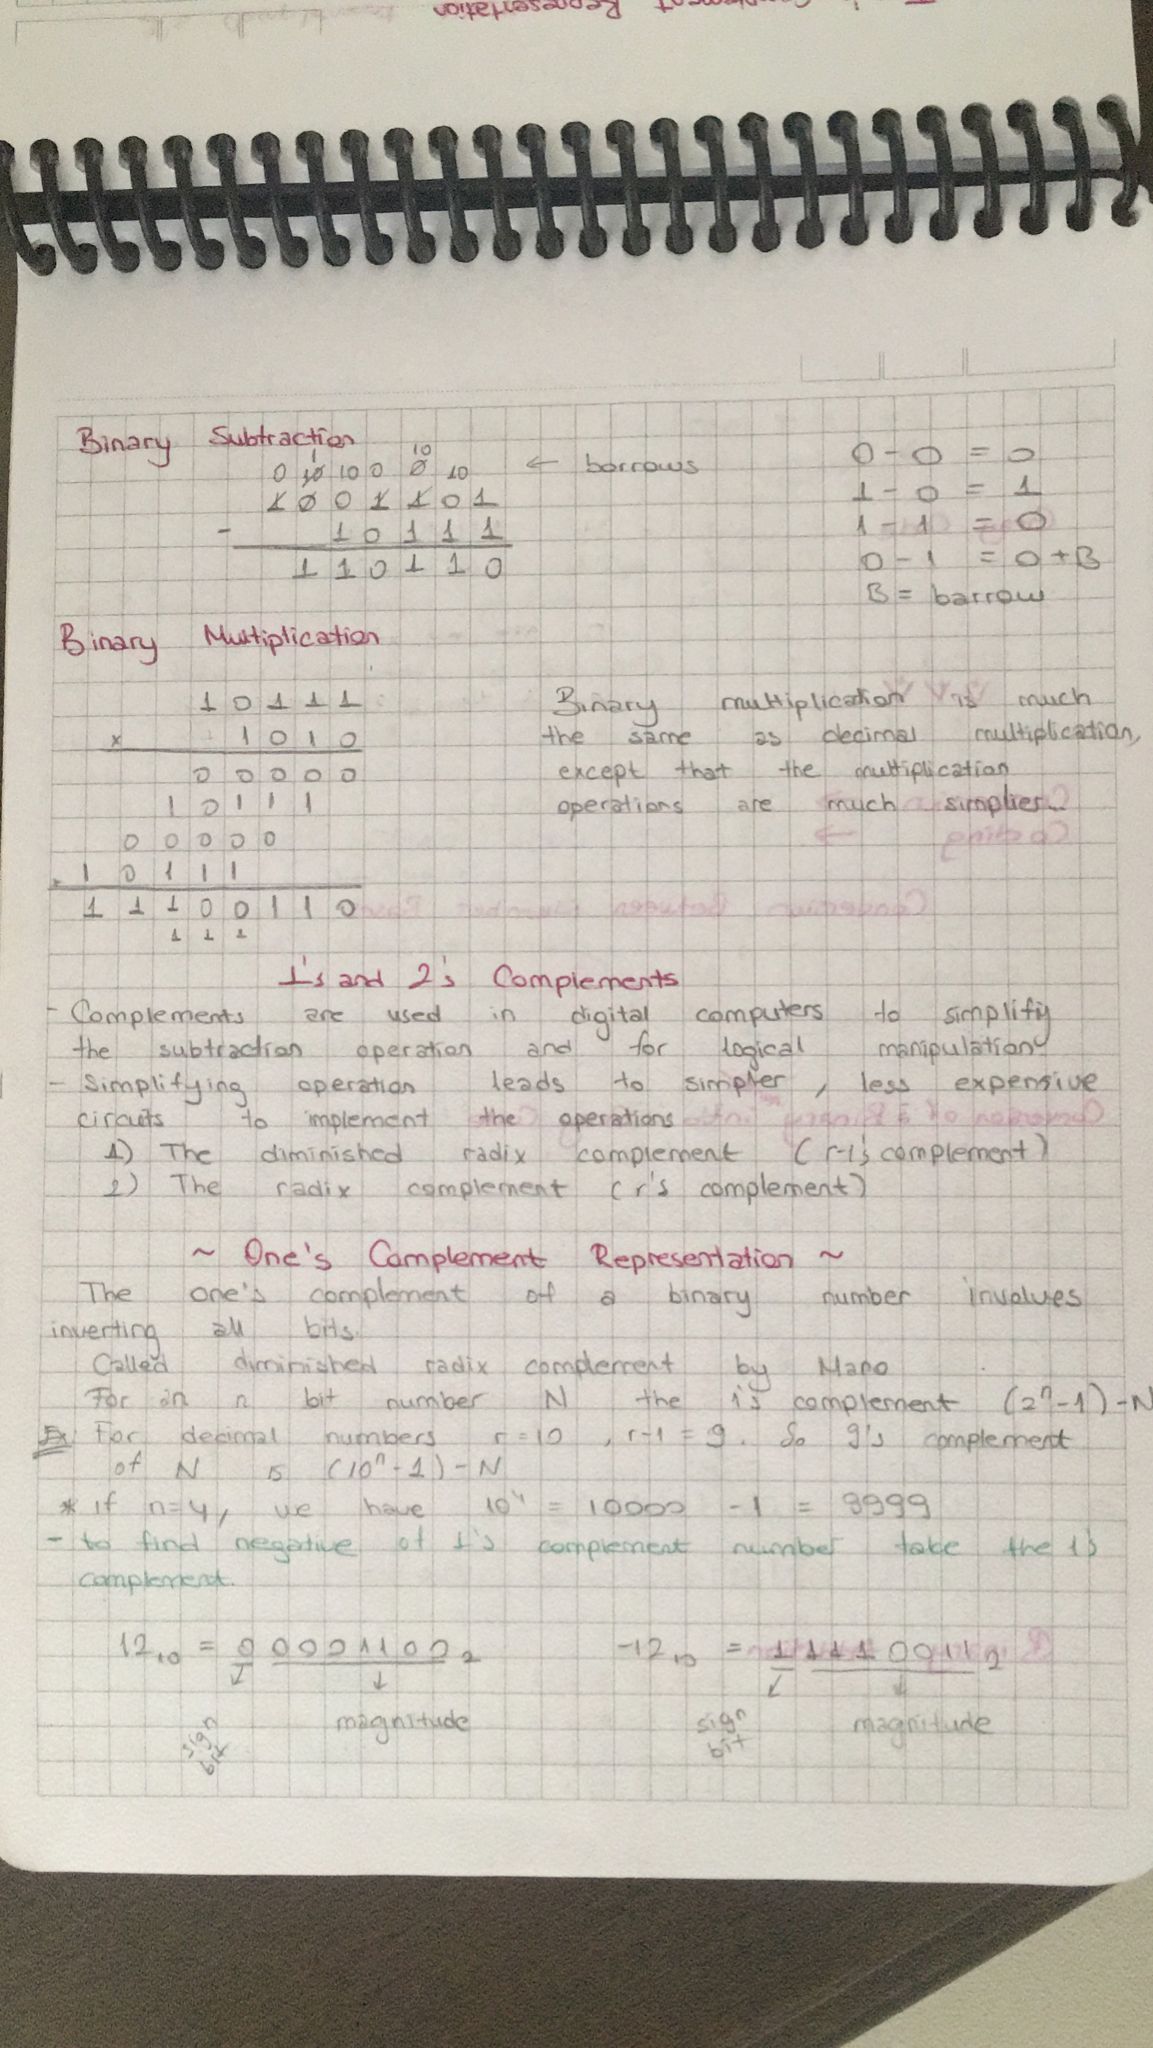 Binary Subtraction
1 10
0 10 10 0 0 10 ← borrows
1 0 0 1 1 0 1
- 1 0 1 1 1
1 1 0 1 1 0
0 - 0 = 0
1 - 0 = 1
1 - 1 = 0
0 - 1 = 0 + B
B = barrow
Binary Multiplication
1 0 1 1 1
x 1 0 1 0
0 0 0 0 0
1 0 1 1 1
0 0 0 0 0
1 0 1 1 1
1 1 1 0 0 1 1 0
1 1 1
Binary multiplication is much
the same as decimal multiplication,
except that the multiplication
operations are much simplier..
1's and 2's Complements
- Complements are used in digital computers to simplifiy
the subtraction operation and for logical manipulation
- Simplifying operation leads to simpler, less expensive
circuits to implement the operations
1) The diminished radix complement (r-1's complement)
2) The radix complement (r's complement)
~ One's Complement Representation ~
The one's complement of a binary number involves
inverting all bits.
Called diminished radix complement by Mano
For an n bit number N the 1's complement (2ⁿ-1)-N
Ex For decimal numbers r=10, r-1=9. So 9's complement
of N is (10ⁿ-1)-N
* if n=4, we have 10⁴ = 10000 -1 = 9999
- to find negative of 1's complement number take the 1's
complement.
12₁₀ = 0 0 0 0 1 1 0 0 ₂ -12₁₀ = 1 1 1 1 0 0 1 1 ₂
↙ ↓ ↙ ↓
sign bit magnitude sign bit magnitude